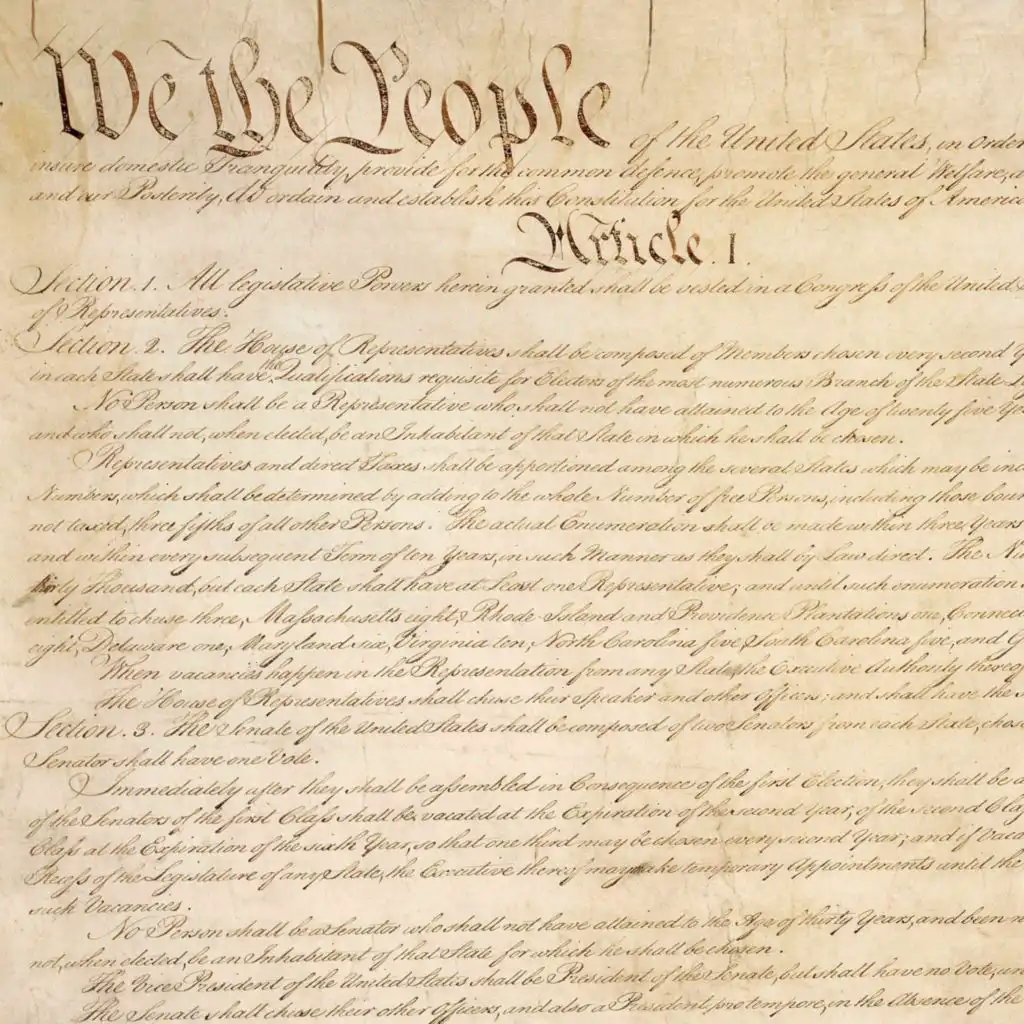 We the People of the United States, in Order
insure domestic Tranquility, provide for the common defence, promote the general Welfare,
and our Posterity, do ordain and establish this Constitution for the United States of America
Article. I.
Section. 1. All legislative Powers herein granted shall be vested in a Congress of the United
of Representatives.
Section. 2. The House of Representatives shall be composed of Members chosen every second
in each State shall have the Qualifications requisite for Electors of the most numerous Branch of the State
No Person shall be a Representative who shall not have attained to the Age of twenty five
and who shall not, when elected, be an Inhabitant of that State in which he shall be chosen.
Representatives and direct Taxes shall be apportioned among the several States which may be
Numbers, which shall be determined by adding to the whole Number of free Persons, including those
not taxed, three fifths of all other Persons. The actual Enumeration shall be made within three Years
and within every subsequent Term of ten Years, in such Manner as they shall by Law direct. The
thirty Thousand, but each State shall have at Least one Representative; and until such enumeration
entitled to chuse three, Massachusetts eight, Rhode-Island and Providence Plantations one,
eight, Delaware one, Maryland six, Virginia ten, North Carolina five, South Carolina five, and
When vacancies happen in the Representation from any State, the Executive Authority
The House of Representatives shall chuse their Speaker and other Officers; and shall have the
Section. 3. The Senate of the United States shall be composed of two Senators from each State,
Senator shall have one Vote.
Immediately after they shall be assembled in Consequence of the first Election, they shall be
of the Senators of the first Class shall be vacated at the Expiration of the second Year, of the second
Class at the Expiration of the sixth Year, so that one third may be chosen every second Year; and if
Recess of the Legislature of any State, the Executive thereof may make temporary Appointments until the
such Vacancies.
No Person shall be a Senator who shall not have attained to the Age of thirty Years, and been
not, when elected, be an Inhabitant of that State for which he shall be chosen.
The Vice President of the United States shall be President of the Senate, but shall have no Vote,
The Senate shall chuse their other Officers, and also a President pro tempore, in the Absence of the